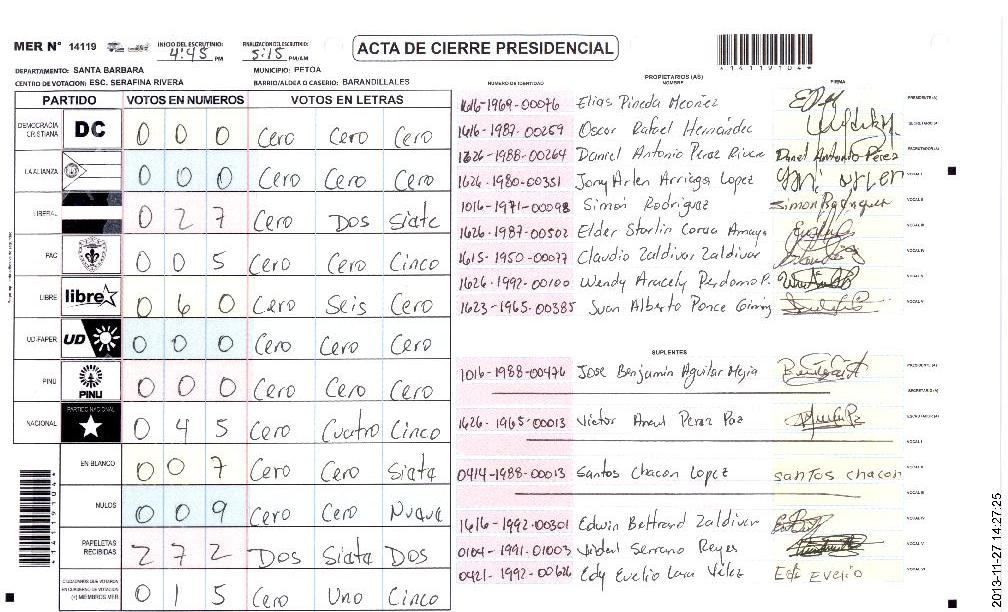 MER N° 14119
INICIO DEL ESCRUTINIO: 4:45 PM
FINALIZACION DEL ESCRUTINIO: 5:15 PM/AM
ACTA DE CIERRE PRESIDENCIAL
1411910 4
DEPARTAMENTO: SANTA BARBARA MUNICIPIO: PETOA
CENTRO DE VOTACION: ESC. SERAFINA RIVERA BARRIO/ALDEA O CASERIO: BARANDILLALES
PARTIDO VOTOS EN NUMEROS VOTOS EN LETRAS
DEMOCRACIA CRISTIANA DC 0 0 0 Cero Cero Cero
LA ALIANZA 0 0 0 Cero Cero Cero
LIBERAL 0 2 7 Cero Dos Siete
PAC 0 0 5 Cero Cero Cinco
LIBRE libre 0 6 0 Cero Seis Cero
UD-FAPER UD 0 0 0 Cero Cero Cero
PINU PINU 0 0 0 Cero Cero Cero
NACIONAL PARTIDO NACIONAL 0 4 5 Cero Cuatro Cinco
EN BLANCO 0 0 7 Cero Cero Siete
NULOS 0 0 9 Cero Cero Nueve
PAPELETAS RECIBIDAS 2 7 2 Dos Siete Dos
CIUDADANOS QUE VOTARON EN CUADERNO DE VOTACION (+) MIEMBROS MER 0 1 5 Cero Uno Cinco
PROPIETARIOS (AS)
NUMERO DE IDENTIDAD NOMBRE FIRMA
1616-1969-00076 Elias Pineda Meoñez PRESIDENTE (A)
1616-1987-00259 Oscar Rafael Hernández SECRETARIO (A)
1626-1988-00264 Daniel Antonio Perez Rivera Daniel Antonio Pérez ESCRUTADOR (A)
1626-1980-00351 Jony Arlen Arriaga Lopez VOCAL I
1016-1971-00098 Simón Rodriguez Simon Rodriguez VOCAL II
1626-1987-00502 Elder Starlin Corea Amaya VOCAL III
1615-1950-00077 Claudio Zaldivar Zaldivar VOCAL IV
1626-1992-00100 Wendy Aracely Perdomo P. VOCAL V
1623-1965-00385 Juan Alberto Ponce
SUPLENTES
1016-1988-00476 Jose Benjamin Aguilar Mejia PRESIDENTE (A)
SECRETARIO (A)
1626-1965-00013 Victor Perez Paz ESCRUTADOR (A)
VOCAL I
0414-1988-00013 Santos Chacon Lopez santos chacon VOCAL II
VOCAL III
1616-1992-00301 Edwin Beltrand Zaldivar VOCAL IV
0104-1991-01003 Vidal Serrano Reyes VOCAL V
0421-1992-00626 Edy Evelio Lara Vélez Evelio VOCAL VI
2013-11-27 14:27:25